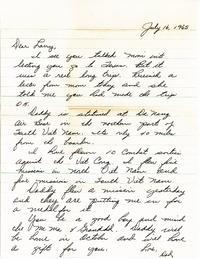 July 16, 1965
Dear Larry,
I see you talked Mom into
letting you go to Texas. But it
was a real long trip. Received a
letter from mom today and she
told me you had made the trip
O.K.
Daddy is stationed at Da Nang
Air Base in the northern part of
South Viet Nam. It's only 80 miles
from the border.
I have flown 10 Combat sorties
against the Viet Cong. I flew five
missions in North Viet Nam and
five missions in South Viet Nam.
Daddy flew a mission yesterday
and they are putting me in for
a medal
You be a good boy and mind
Me Ma & Granddad. Daddy will
be home in October and will have
a gift for you. Love,
Dad